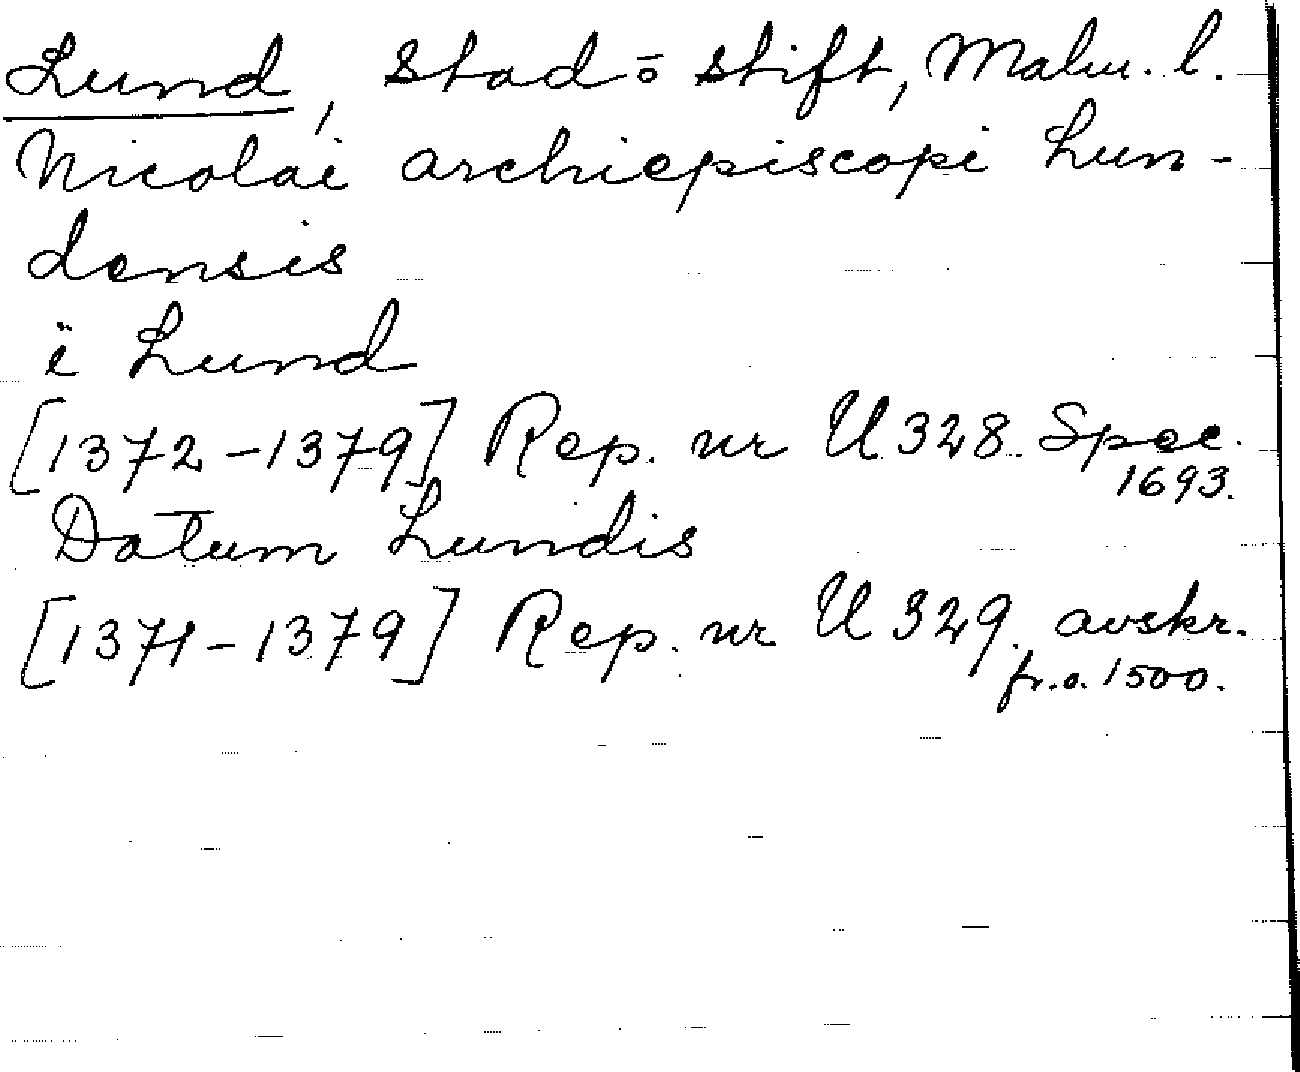 Lund, Stad o stift, Malm. l.
Nicolai archiepiscopi Lun-
densis
i Lund
[1372-1379] Rep. nr U 328 Spec.
1693.
Datum Lundis
[1371-1379] Rep. nr U 329. avskr.
fr. o. 1500.